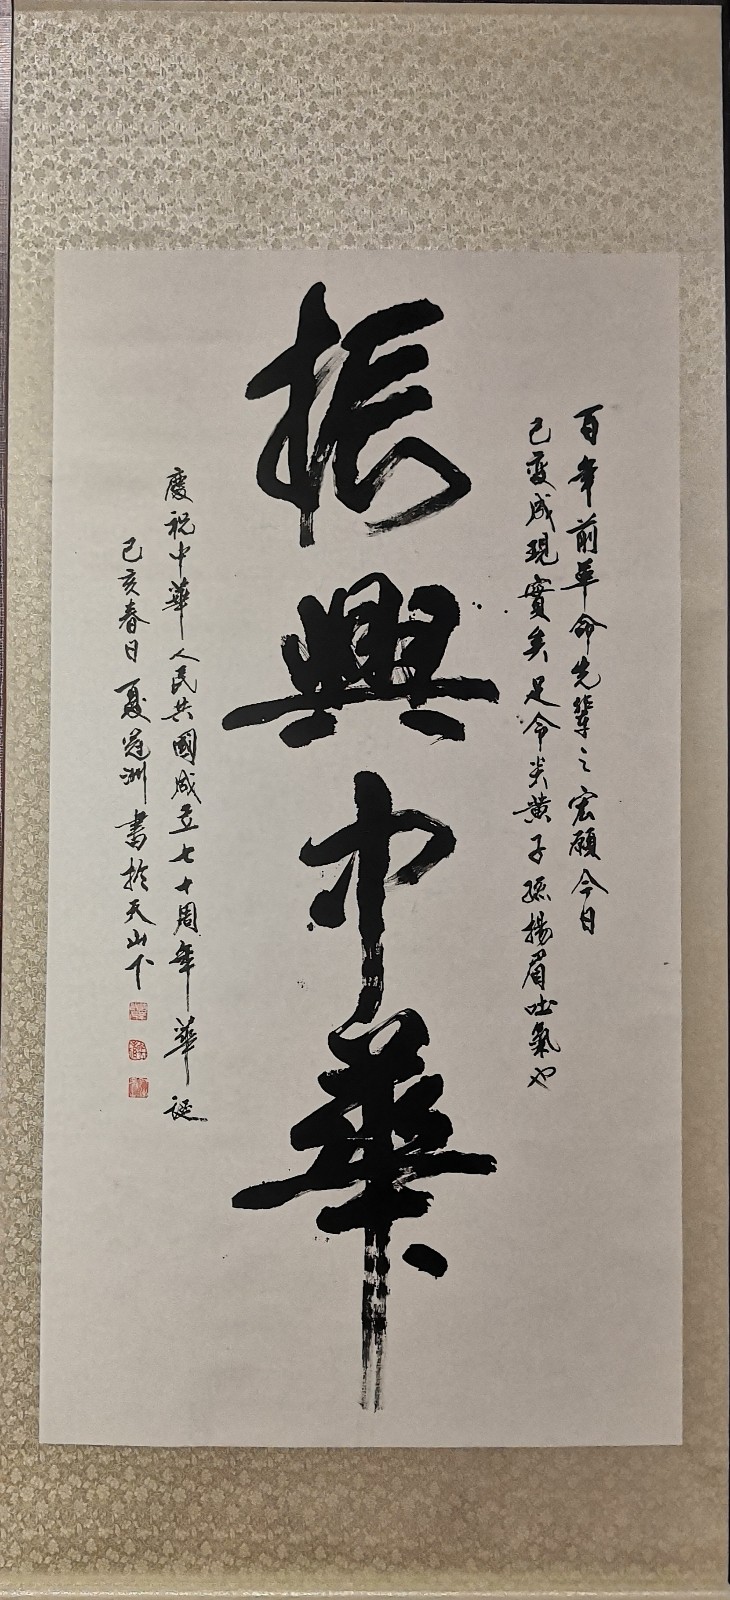 百年前革命先輩之宏願今日
已變成現實矣足令炎黃子孫揚眉吐氣也
振興中華
慶祝中華人民共國成立七十周年華誕
己亥春日夏冠洲書於天山下